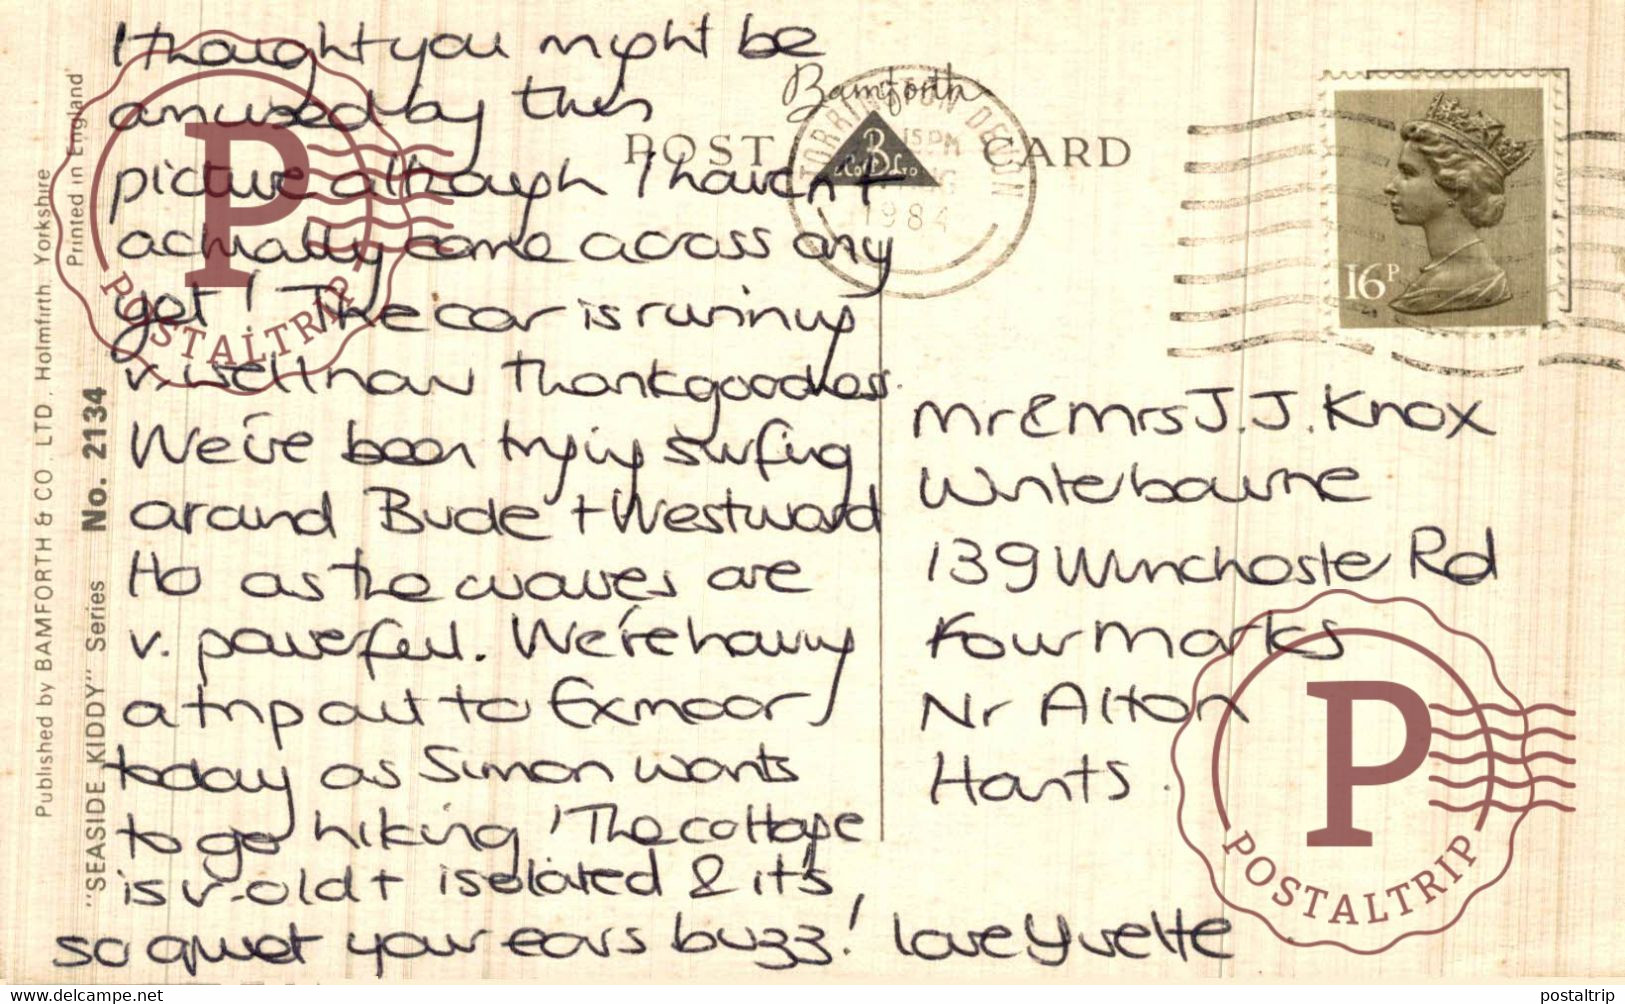 I thought you might be
amused by this
picture although I haven't
actually come across any
yet! The car is running
v. well now thank goodness.
We've been trying surfing
around Bude + Westward
Ho as the waves are
v. powerful. We're having
a trip out to Exmoor
today as Simon wants
to go hiking! The cottage
is v. old + isolated & it's
so quiet your ears buzz! Love Yvette
Bamforth
POST CARD
B
& Co Ltd
TORRINGTON DEVON
15 PM
1984
16P
Mr & Mrs J.J. Knox
Winterbourne
139 Winchester Rd
Four Marks
Nr Alton
Hants.
Published by BAMFORTH & CO. LTD. Holmfirth Yorkshire
Printed in England
"SEASIDE KIDDY" Series No. 2134
P
POSTALTRIP
P
POSTALTRIP
https://www.delcampe.net/en_GB/collectibles
postaltrip